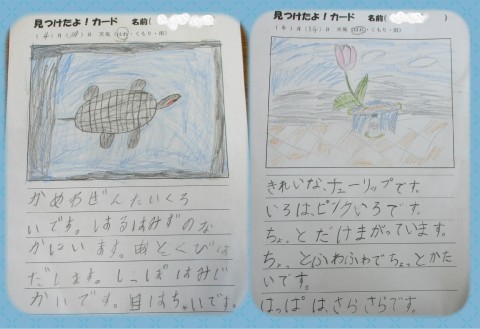 見つけたよ！カード 名前(
(4)月( )日 天気 (はれ・くもり・雨)
かめわぜんたいくろ
いです。はるはみずのな
かにいます。あとくびは
だします。しっぽはみじ
かいです。目はちいです。
見つけたよ！カード 名前(
( )月( )日 天気 (はれ・くもり・雨)
きれいな、チューリップです。
いろは、ピンクいろです。
ちょっとだけまがっています。
ちょっとふわふわでちょっとかた
いです。
はっぱは、さらさらです。